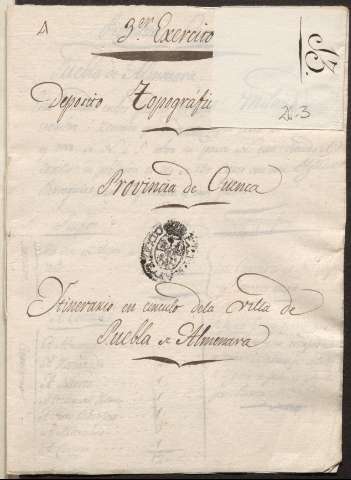 A
3.er Exercito
Deposito Topografi
Provincia de Cuenca
Itinerario en circulo dela villa de
Puebla de Almenara